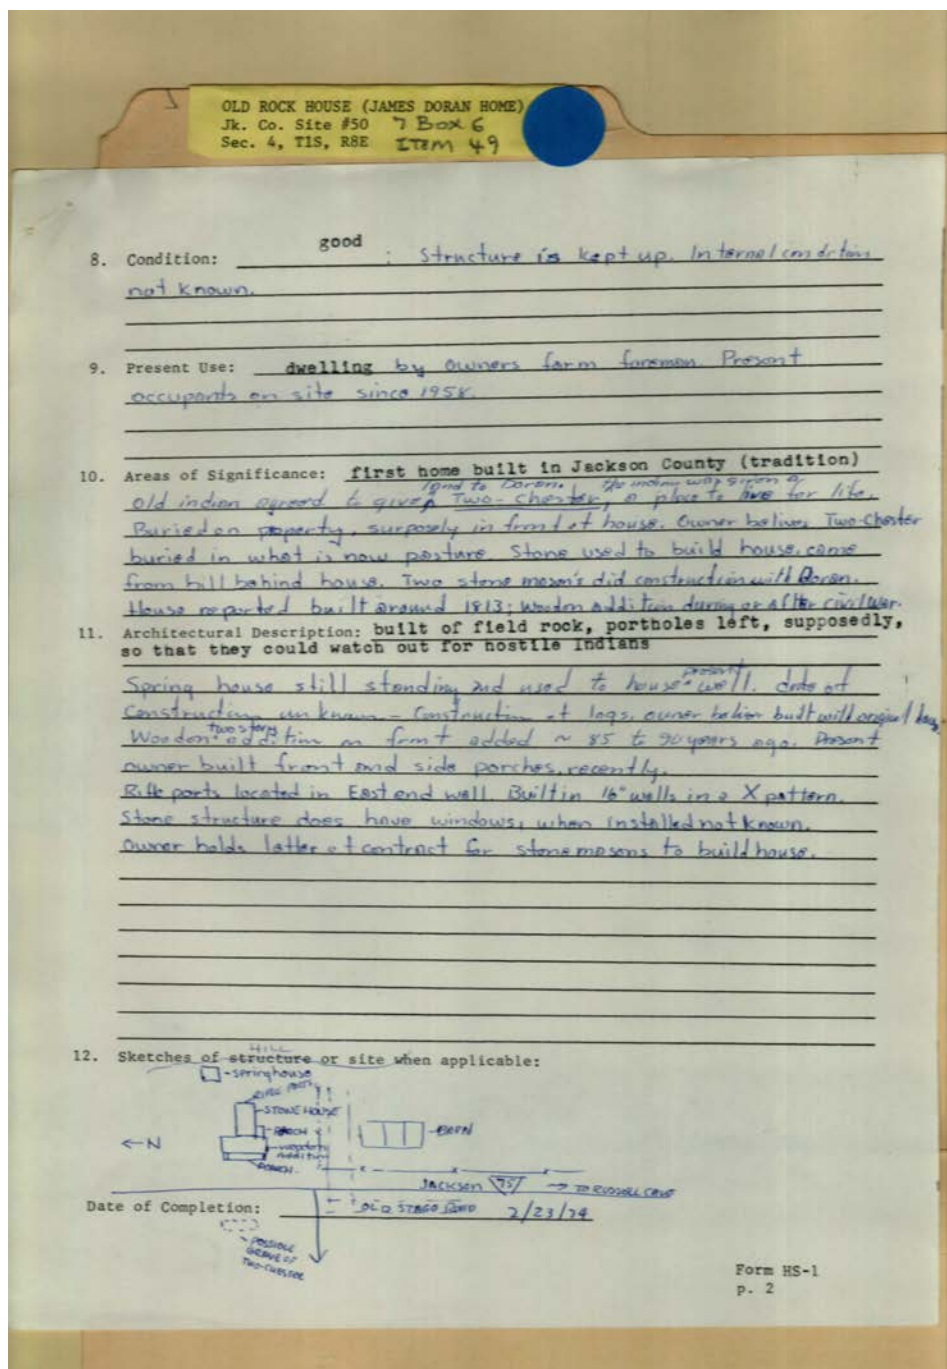 OLD ROCK HOUSE (JAMES DORAN HOME)
Jk. Co. Site #50 7 Box 6
Sec. 4, T1S, R8E ITEM 49
8. Condition: good ; Structure is kept up. Internal condition
not known.
9. Present Use: dwelling by owners farm foreman. Present
occupants on site since 1958.
10. Areas of Significance: first home built in Jackson County (tradition)
land to Doran. the indian was given a
old indian agreed to give Two-Chester, a place to live for life.
Buried on property, surposely in front of house. Owner belives Two-Chester
buried in what is now pasture. Stone used to build house, came
from hill behind house. Two stone mason's did construction with Doran.
House reported built around 1813; Wooden addition during or after civil war.
11. Architectural Description: built of field rock, portholes left, supposedly,
so that they could watch out for hostile Indians
present
Spring house still standing and used to house well. date of
Construction unknown - Construction of logs, owner believ built with original
two story
Wooden addition on front added ~ 85 to 90 years ago. Present
owner built front and side porches, recently.
Rifle ports located in East end wall. Built in 16" walls in a X pattern.
Stone structure does have windows, when installed not known.
Owner holds letter of contract for stone masons to build house.
12. Sketches of structure or site when applicable:
HILL
- springhouse
RIFLE PORTS
STONE HOUSE
PORCH
BARN
← N
wooden
addition
PORCH
JACKSON 75 → TO RUSSELL CAVE
Date of Completion: OLD STAGE ROAD 2/23/74
- POSSIBLE
GRAVE OF
TWO-CHESTER
Form HS-1
p. 2